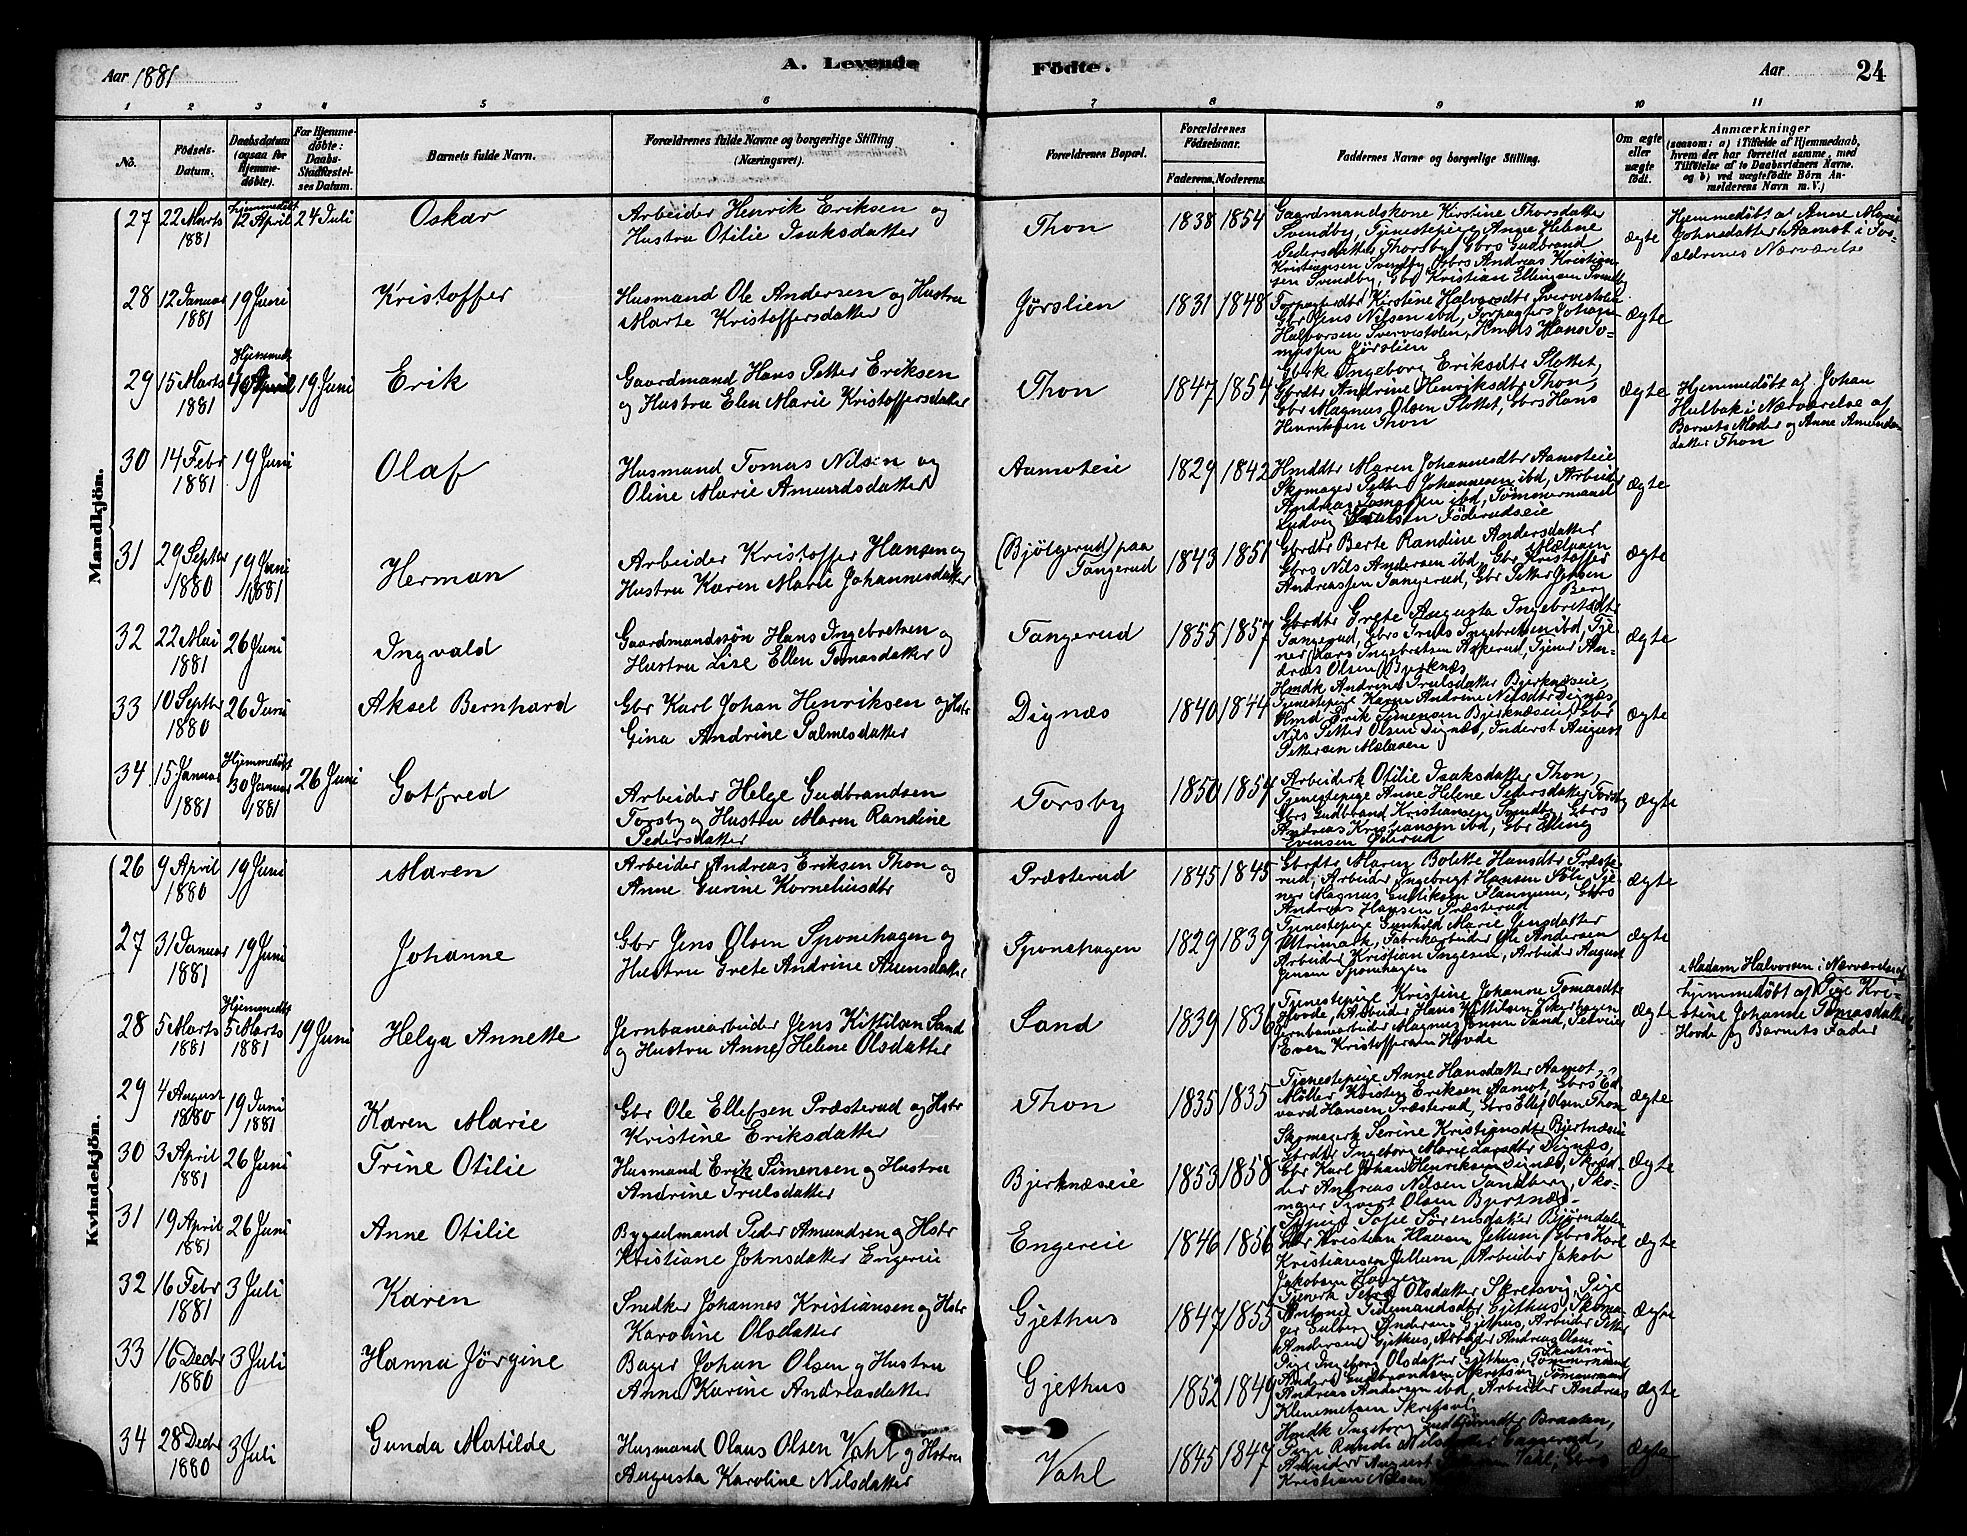 Aar 1881
A. Levende Födte.
Aar
24
1 2 3 4 5 6 7 8 9 10 11
No.
Födsels-Datum.
Daabsdatum (ogsaa for Hjemme-döbte).
For Hjemme-döbte: Daabs-Stadfæstel-ses Datum.
Barnets fulde Navn.
Forældrenes fulde Navne og borgerlige Stilling (Næringsvei).
Forældrenes Bopæl.
Forældrenes Födselsaar.
Faderens. Moderens.
Faddernes Navne og borgerlige Stilling.
Om ægte eller uægte födt.
Anmærkninger
(saasom: a) i Tilfælde af Hjemmedaab, hvem der har forrettet samme, med Tilföielse af to Daabsvidners Navne. og b) ved uægtefödte Börn An-melderens Navn m. V.)
Mandkjön.
27 22 Marts 1881 Hjemmedöbt 12 April 24 Juli Oskar
Arbeider Henrik Eriksen og
Hustru Otilie Isaksdatter
Thon 1838 1854
Gaardmandskone Kirstine Thorsdatter
Svendby, Tjenestepige Anne Helene
Pedersdatter Thorsby, Gbrs Gudbrand
Kristiansen Svendby, Gbrs Andreas Kristian-
sen Svendby, Gbr Kristian Ellingsen Svendby
ægte
Hjemmedöbt af Anne Marie
Johnsdatter Aamot i For-
ældrenes Nærværelse
28 12 Januar 1881 19 Juni Kristoffer
Husmand Ole Andersen og Hustru
Marte Kristoffersdatter
Jørslien 1831 1848
Forpagterdtr Kirstine Halvorsdtr Svervestolen
Gbr Jens Nilsen ibd, Forpagters Johan
Halvorsen Svervestolen, Hmds Hans To-
massen Jørslien
ægte
29 15 Marts 1881 Hjemmed. 4 April 19 Juni Erik
Gaardmand Hans Petter Eriksen
og Hustru Elen Marie Kristoffersdatter
Thon 1847 1854
Gbrk Ingeborg Eriksdtr Slottet,
Gbrdtr Andrine Henriksdtr Thon,
Gbr Magnus Olsen Slottet, Gbrs Hans
Henriksen Thon
ægte
Hjemmedöbt af Johan
Hulbak i Nærværelse af
Barnets Moder og Anne Amunds-
datter Thon
30 14 Febr 1881 19 Juni Olaf
Husmand Tomas Nilsen og
Oline Marie Amundsdatter
Aamoteie 1829 1842
Hmddtr Maren Johannesdtr Aamoteie
Skomager Petter Johannesen ibd, Arbeider
Andreas Tomassen ibd, Tömmermand
Ludvig Föderudseie
ægte
31 29 Septbr 1880 19 Juni 1881 Herman
Arbeider Kristoffer Hansen og
Hustru Karen Marie Johannesdatter
(Bjölgerud) paa
Tangerud 1843 1851
Gbrdtr Berte Randine Andersdatter
Gbrs Nils Andersen ibd, Gbr Kristoffer
Andreassen Tangerud, Gbr Petter Jensen
Berg
ægte
32 22 Mai 1881 26 Juni Ingvald
Gaardmandssön Hans Ingebretsen og
Hustru Lise Ellen Tomasdatter
Tangerud 1855 1857
Gbrdtr Grete Augusta Ingebretsdtr
Tangerud, Gbrs Truls Ingebretsen ibd, Tje-
ner Lars Ingebretsen Askerud, Tjener An-
dreas Olsen Bjerknæs
ægte
33 10 Septbr 1880 26 Juni Aksel Bernhard
Gbr Karl Johan Henriksen og Hstr
Gina Andrine Palmesdatter
Dignæs 1840 1844
Hmdk Andrine Trulsdatter Bjerknæseie,
Tjenestepige Karen Andrine Nilsdtr Dignæs,
Hmd Erik Simensen Bjerknæseie, Gbr
Nils Petter Olsen Dignæs, Inderst August
Pettersen Mælaaen
ægte
34 15 Januar 1881 Hjemmedöbt 30 Januar 1881 26 Juni Gotfred
Arbeider Helge Gudbrandsen
Torsby og Hustru Maren Randine
Pedersdatter
Torsby 1850 1854
Arbeiderk Otilie Isaksdatter Thon,
Tjenestepige Anne Helene Petersdatter Torsby
Gbrs Gudbrand Kristiansen Svendby, Gbrs
Andreas Kristiansen ibd, Gbr Elling
Evensen Öderud
ægte
Kvindekjön.
26 9 April 1880 19 Juni Maren
Arbeider Andreas Eriksen Thon og
Anne Gurine Korneliusdtr
Præsterud 1845 1845
Gbrdtr Maren Bolette Hansdtr Præste-
rud, Arbeider Ingebrigt Hansen Föli, Tje-
ner Magnus Gulliksen Flannum, Gbrs
Andreas Hansen Præsterud
ægte
27 31 Januar 1881 19 Juni Johanne
Gbr Jens Olsen Sponehagen og
Hustru Grete Andrine Auensdatter
Sponehagen 1829 1839
Tjenestepige Gunhild Marie Jensdatter
Utrimark, Fabrikarbeider Ole Andersen
Arbeider Kristian Ingesen, Arbeider August
Jensen Sponhagen
ægte
28 5 Marts 1881 Hjemmedöbt 5 Marts 1881 19 Juni Helga Annette
Jernbanearbeider Jens Kittilsen Sand
og Hustru Anne Helene Olsdatter
Sand 1839 1836
Tjenestepige Kristine Johanne Tomasdtr
Hovde, Arbeider Hans Kittilsen Vikerhagen
Jernbanearbeider Magnus Jonsen Sand,
Even Kristoffersen Hovde
ægte
Madam Halvorsen i Nærværelse af
hjemmedöbt af Pige Kri-
stine Johanne Tomasdatter
Hovde og Barnets Fader
29 4 August 1880 19 Juni 1881 Karen Marie
Gbr Ole Ellefsen Præsterud og Hstr
Kristine Eriksdatter
Thon 1835 1835
Tjenestepige Anne Hansdatter Aamot,
Möller Kristen Eriksen Aamot, Gbrs Ed-
vard Hansen Præsterud, Gbrs Ellef Olsen Thon
ægte
30 3 April 1881 26 Juni Trine Otilie
Husmand Erik Simensen og Hustru
Andrine Trulsdatter
Bjerknæseie 1853 1858
Skomagerk Serine Kristiansdtr Bjertnæseie
Gbrdtr Ingeborg Marie Larsdtr Dignæs,
Gbr Karl Johan Henriksen Dignæs, Skræd-
der Andreas Nilsen Sandberg, Sko-
mager Syvert Olsen Bjertnæs
ægte
31 19 April 1881 26 Juni Anne Otilie
Bygselmand Peder Amundsen og Hstr
Kristiane Johnsdatter Engereie
Engereie 1846 1856
Sypige Sofie Sørensdatter Bjørndalen
Gbr Kristian Klausen Jellum, Gbrs Karl
Kristiansen Jellum, Arbeider Jakob
Jakobsen Haagen
ægte
32 16 Febr 1881 3 Juli Karen
Snedker Johannes Kristiansen og Hstr
Karoline Olsdatter
Gjethus 1847 1855
Petra Olsdatter Skretsvig, Pige
Antonie Tidemandsdtr Gjethus, Skoma-
ger Gulberg Andersen Gjethus, Arbeider Petter
Andersen Gjethus, Arbeider Andreas Olsen
Skretsvig
ægte
33 16 Decbr 1880 3 Juli Hanna Jörgine
Bager Johan Olsen og Hustru
Anne Karine Andreasdatter
Gjethus 1852 1849
Pige Ingeborg Olsdatter Gjethus, Tömmermand
Anders Gudbrandsen Skretsvig, Tömmermand
Andreas Andersen ibd, Arbeider Andreas
Klemmetsen Skretsvig
ægte
34 28 Decbr 1880 3 Juli Gunda Matilde
Husmand Olaus Olsen Vahl og Hstru
Augusta Karoline Nilsdatter
Vahl 1845 1847
Hmdk Ingeborg Gudbrandsdtr Braaten,
Pige Randi Nilsdatter
Arbeider August Vahl, Gbrs
Kristian Nilsen
ægte